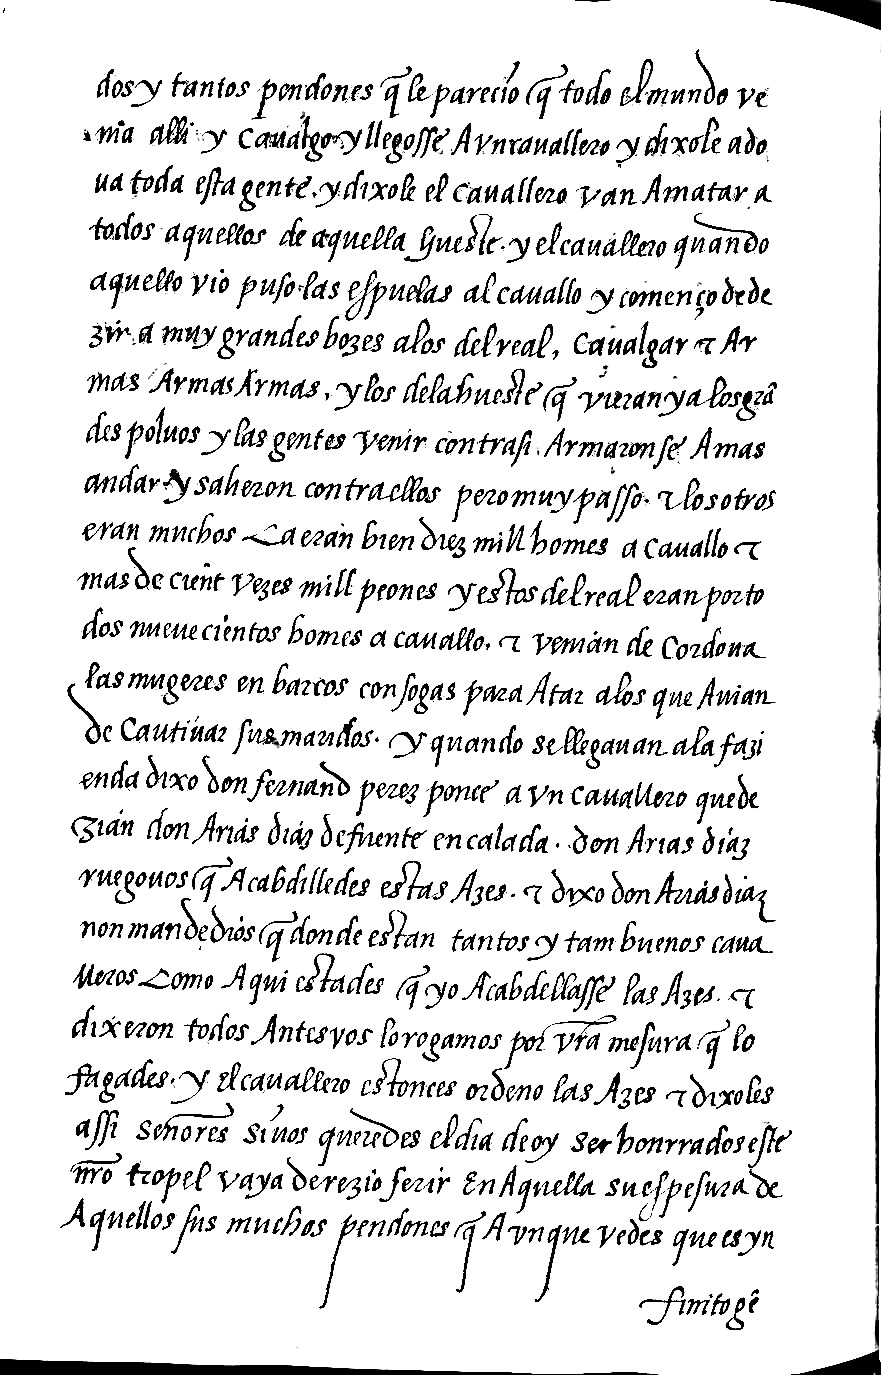 dos y tantos pendones q̃ le parecio q̃ todo el mundo ve
nia alli y Caualgo y llegosse A vn cauallero y dixole ado
ua toda esta gente. y dixole el cauallero van Amatar a
todos aquellos de aquella hueste. y el cauallero quando
aquello vio puso las espuelas al cauallo y començo de de
zir a muy grandes bozes alos del real, Caualgar & Ar
mas Armas Armas, y los dela hueste q̃ vieran ya los grã
des poluos y las gentes venir contra si. Armaronse A mas
andar y salieron contra ellos pero muy passo. & los otros
eran muchos Ca eran bien diez mill homes a cauallo &
mas de cient vezes mill peones y estos del real eran por to
dos nueuecientos homes a cauallo. & venian de Cordoua
las mugeres en barcos con sogas para Atar alos que Auian
de Cautiuar sus maridos. y quando se llegauan ala fazi
enda dixo don fernand perez ponce a vn cauallero que de
zian don Arias diaz de fuente encalada. don Arias diaz
ruegouos q̃ Acabdilledes estas Azes. & dixo don Arias diaz
non mande dios q̃ donde estan tantos y tam buenos caua
lleros Como Aqui estades q̃ yo Acabdellasse las Azes. &
dixeron todos Antes vos lo rogamos por vr̃a mesura q̃ lo
fagades. y El cauallero estonces ordeno las Azes & dixoles
assi señores si uos queredes el dia de oy ser honrrados este
nr̃o tropel vaya derezio ferir En Aquella su espesura de
Aquellos sus muchos pendones q̃ Avnque vedes que es yn
finito gẽ